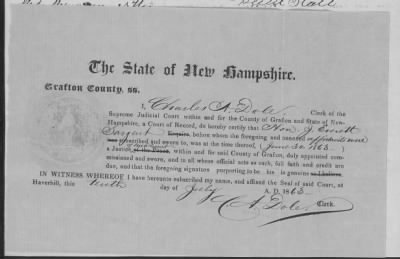 The State of New Hampshire.
Grafton County, ss.
I, Charles A. Dole Clerk of the
Supreme Judicial Court within and for the County of Grafton and State of New-
Hampshire, a Court of Record, do hereby certify that Hon J. Everett
Sargent Esquire, before whom the foregoing and annexed affidavits were
subscribed and sworn to, was at the time thereof, (June 30, 1863.)
a Justice of the Peace, within and for said County of Grafton, duly appointed com-
missioned and sworn, and to all whose official acts as such, full faith and credit are
due, and that the foregoing signature purporting to be his is genuine as I believe.
IN WITNESS WHEREOF I have hereunto subscribed my name, and affixed the Seal of said Court, at
Haverhill, this tenth day of July A. D. 1863.
C A Dole Clerk.